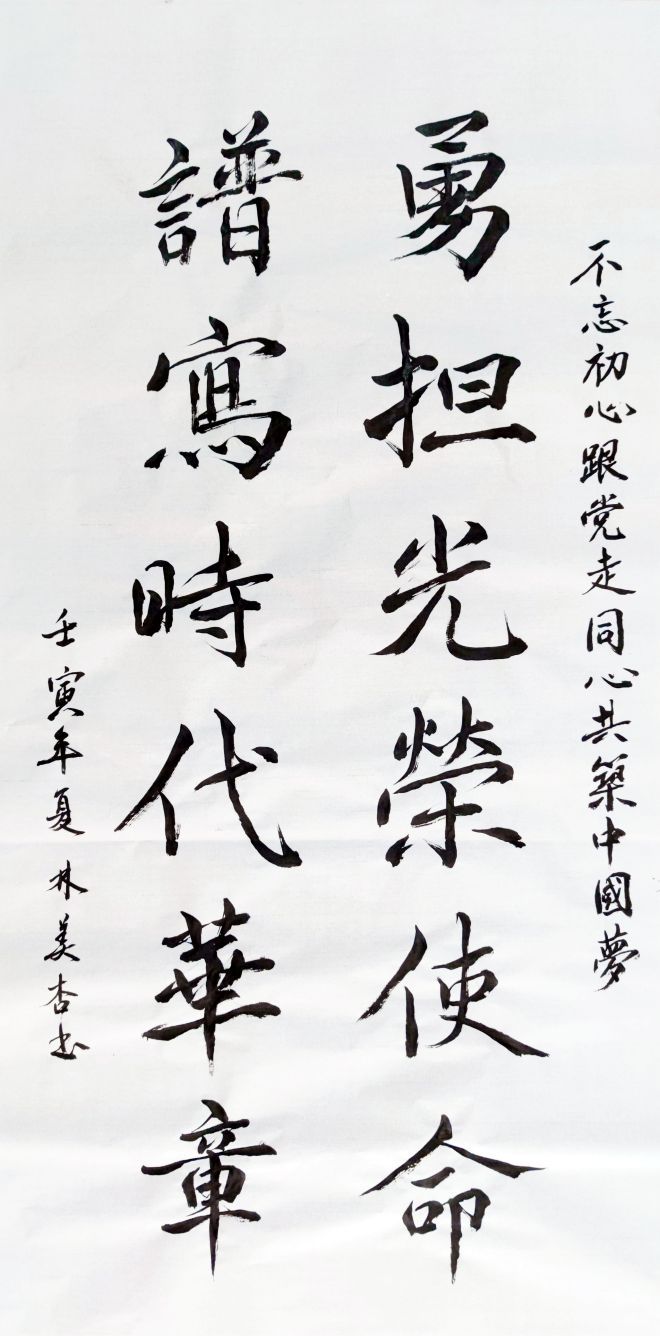 不忘初心跟党走同心共築中國夢
勇担光榮使命
譜寫時代華章
壬寅年夏 林美杏书